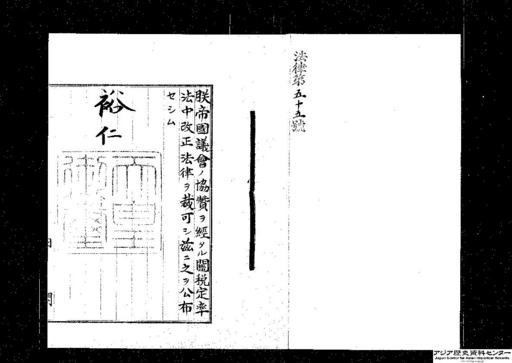 法律第五十五號
朕帝國議會ノ協贊ヲ經タル關税定率
法中改正法律ヲ裁可シ茲ニ之ヲ公布
セシム
裕仁
アジア歴史資料センター
Japan Center for Asian Historical Records